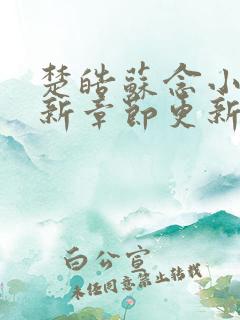 楚皓蘇念小
新章節更新
白公宣
未经同意禁止转载